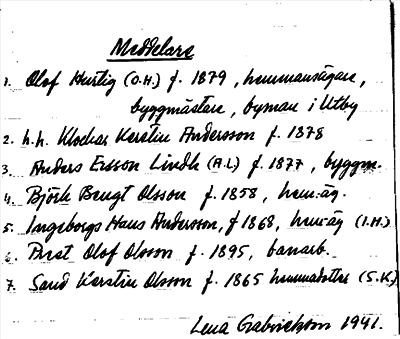 Meddelare
1. Olof Hurtig (O.H.) f. 1879, hemmansägare,
byggmästare, byman i Utby
2. h.h. Klockar Kerstin Andersson f. 1878
3. Anders Ersson Lindh (A.L) f. 1877, byggm.
4. Björk Bengt Olsson f. 1858, hem.äg.
5. Ingeborgs Hans Andersson, f 1868, hem.äg (I.H.)
6. Olof Olsson f. 1895, banarb.
7. Sand Kerstin Olsson f. 1865 hemmadotter (S.K.)
Lena Gabrielsson 1941.